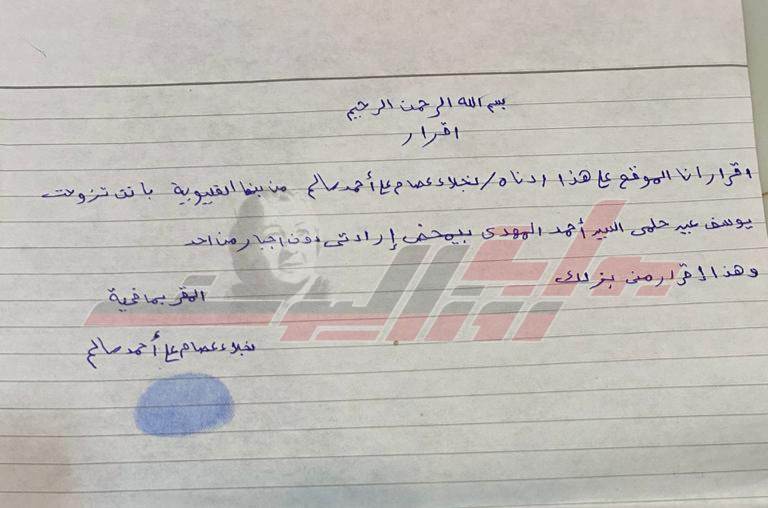 بسم الله الرحمن الرحيم
اقرار
اقرار انا الموقع على هذا ادناه / نجلاء عصام على أحمد سالم من بنها القليوبية بانى تزوجت
يوسف عبير حلمى السيد أحمد المهدى بمحض إرادتى دون اجبار من احد
وهذا إقرار منى بذلك
المقر بما فية
نجلاء عصام على أحمد سالم
بوابة روز اليوسف